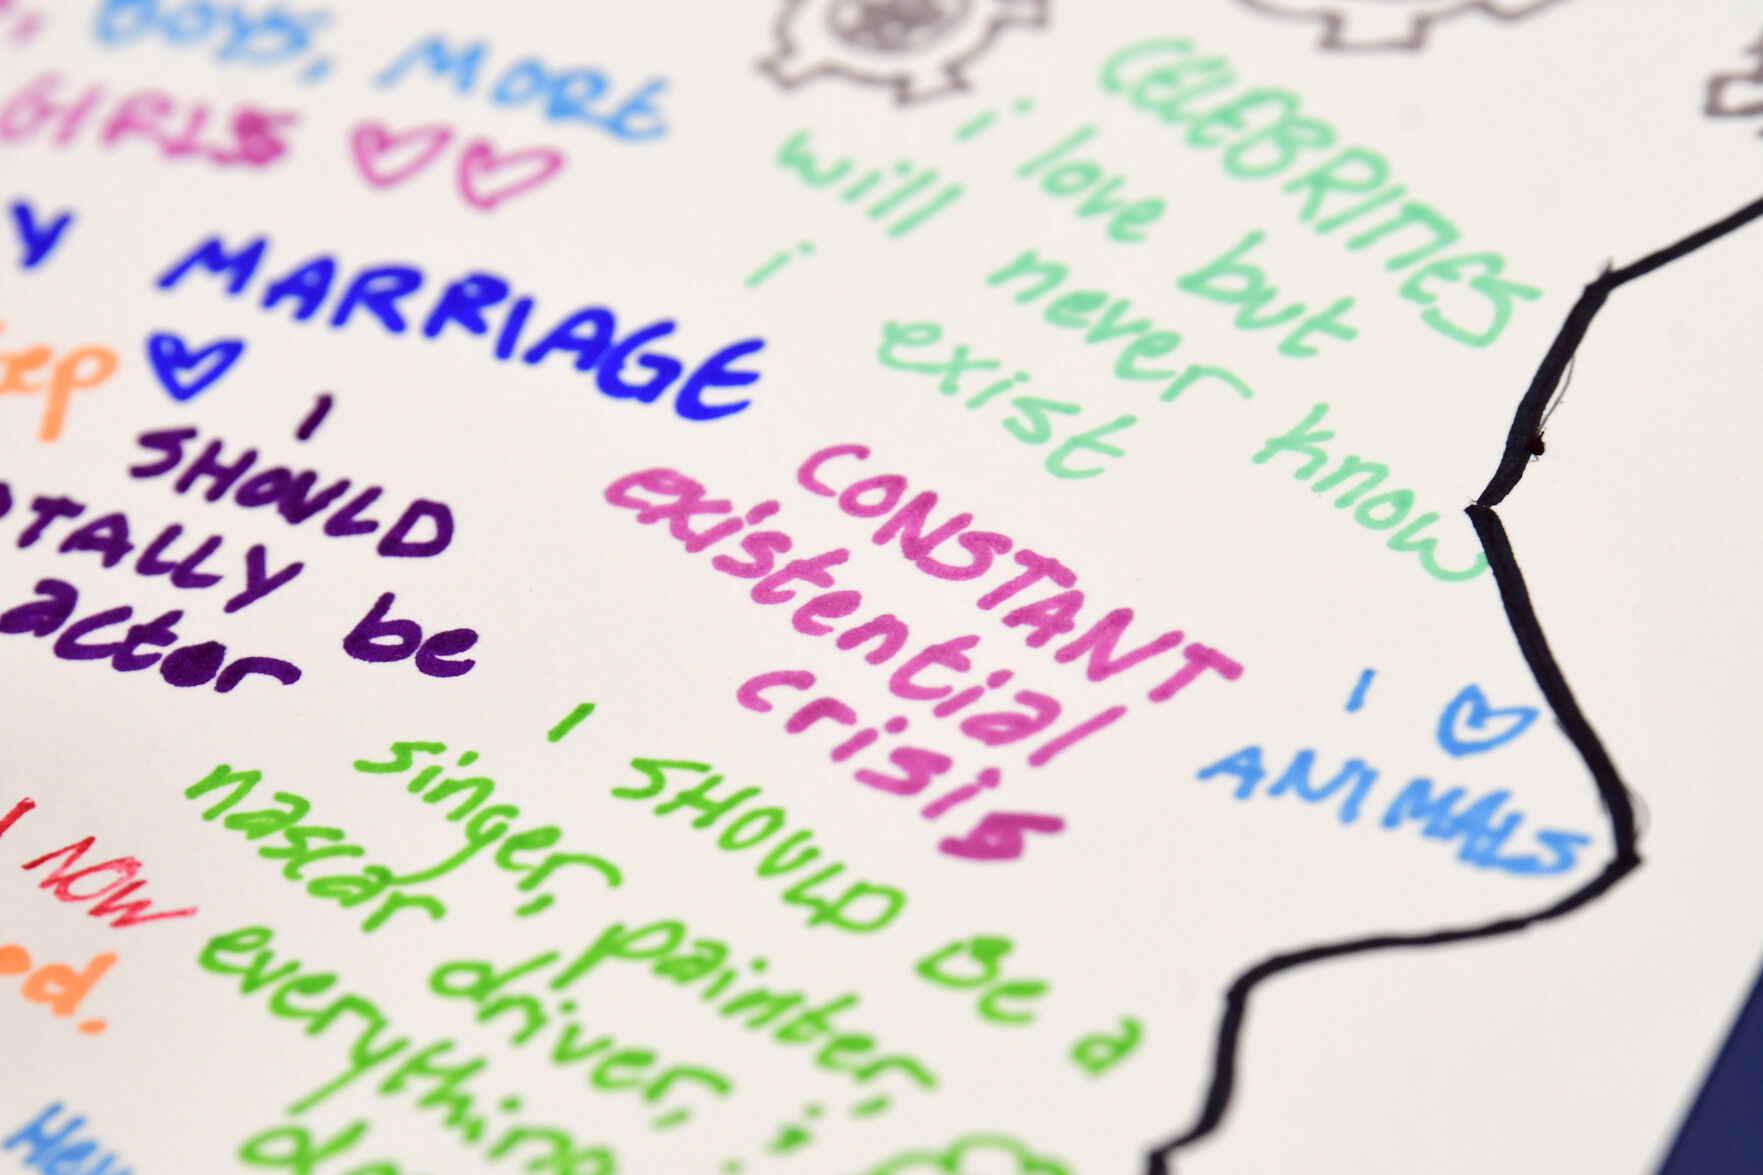 BOYS, MORE
GIRLS
Y MARRIAGE
CELEBRITIES
i love but
will never know
i exist
I
SHOULD
TALLY be
actor
CONSTANT
existential
crisis
I
ANIMALS
I SHOULD Be a
singer, painter,
nascar driver, i
everything
NOW